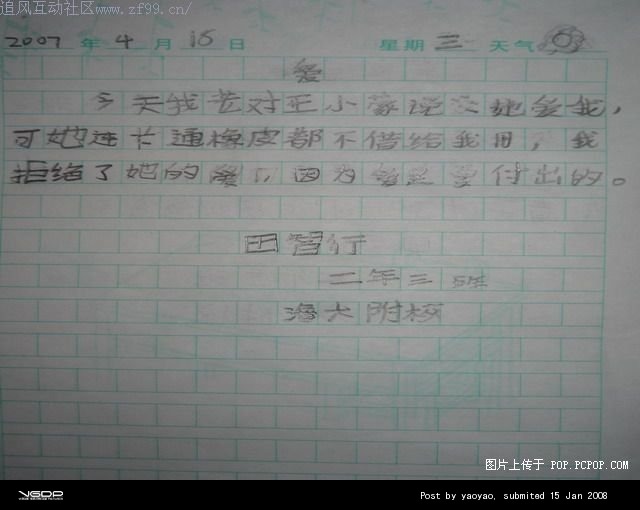 追风互动社区www.zf99.cn/
2007 年 4 月 18 日 星期 三 天气
爱
今天我苦对王小蒙说 她爱我,
可她连卡通橡皮都不借给我用,我
拒绝了她的爱,因为 爱是要付出的。
田智行
二年三班
海大附校
图片上传于 POP.PCPOP.COM
VGDP
Post by yaoyao, submited 15 Jan 2008